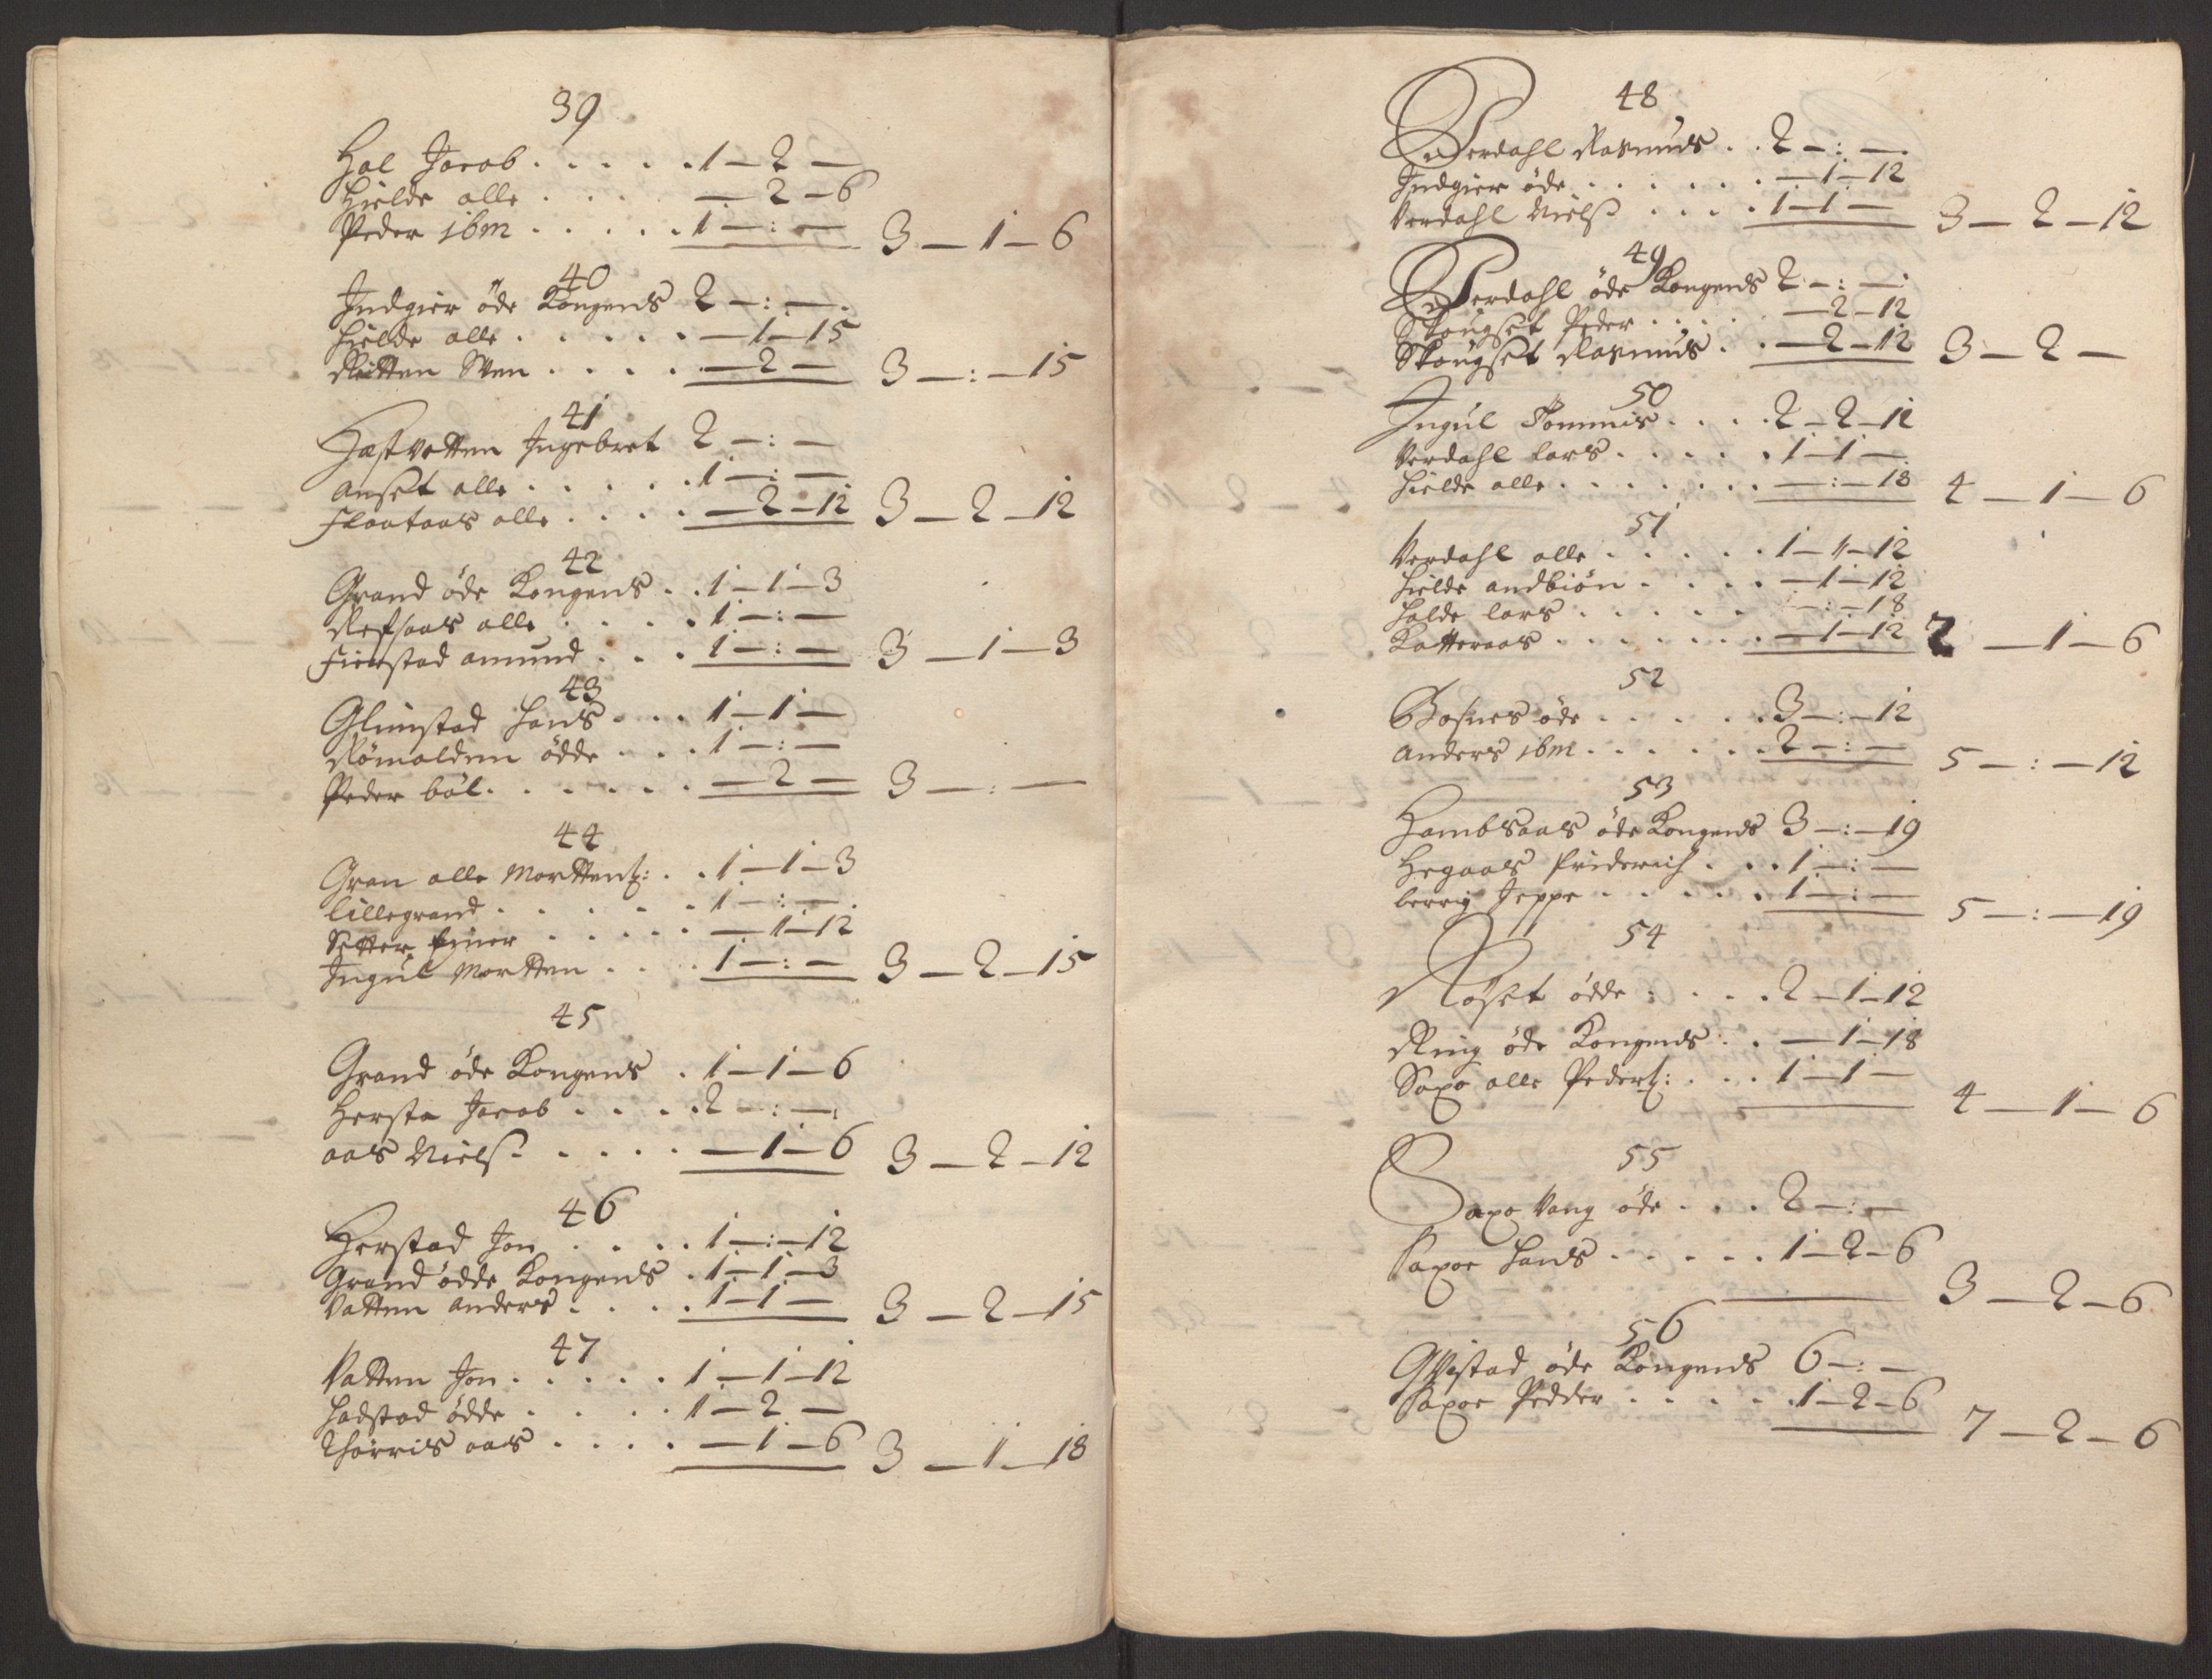 39
Hal Jacob . . . . . 1 — 2 —
Hielde olle . . . . — 2 — 6
Peder ibm . . . . . 1 — : — 3 — 1 — 6
40
Indgier öde Kongens 2 — : —
Hielde olle . . . . . — 1 — 15
Rotten Sten . . . . — 2 — 3 — : — 15
41
Hastvatten Ingebret 2 — : —
Anset olle . . . . . 1 — : —
Flaataas olle . . . . — 2 — 12 3 — 2 — 12
42
Grand öde Kongens . . 1 — 1 — 3
Refsaas olle . . . . 1 — : —
Fierstad Amund . . . 1 — : — 3 — 1 — 3
43
Glimstad Hans . . . 1 — 1 —
Römolden ödde . . . 1 — : —
Peder böl . . . . . — 2 — 3 — : —
44
Gran olle Morttens: . . 1 — 1 — 3
Lillegrand . . . . . 1 — : —
Setter Einer . . . . . — 1 — 12
Ingul Mortten . . . . 1 — : — 3 — 2 — 15
45
Grand öde Kongens . 1 — 1 — 6
Hersta Jacob . . . . 2 — : —
aas Niels . . . . . — 1 — 6 3 — 2 — 12
46
Herstad Jon . . . . 1 — : — 12
Grand ödde Kongens . 1 — 1 — 3
Vatten Anders . . . . 1 — 1 — 3 — 2 — 15
47
Vatten Jon . . . . . 1 — 1 — 12
Hadstad ödde . . . . 1 — 2 —
Thorris aas . . . . — 1 — 6 3 — 1 — 18
48
Verdahl Rasmus . . 2 — : —
Indgier öde . . . . . . — 1 — 12
Verdahl Niels . . . . 1 — 1 — 3 — 2 — 12
49
Verdahl öde Kongens 2 — : —
Skougset Peder . . . . — 2 — 12
Skougset Rasmus . . — 2 — 12 3 — 2 —
50
Ingul Tommis . . . . 2 — 2 — 12
Verdahl Lars . . . . . 1 — 1 —
Hielde olle . . . . . . . — : — 18 4 — 1 — 6
51
Verdahl olle . . . . . 1 — 1 — 12
Hielde Andbiön . . . . — 1 — 12
Halde Lars . . . . . — : — 18
Katteraas . . . . . . . — 1 — 12 2 — 1 — 6
52
Bosnes öde . . . . . . 3 — : — 12
Anders ibm . . . . . . 2 — : — 5 — : — 12
53
Hambsaas öde Kongens 3 — : — 19
Hegaas Friderich . . . 1 — : —
berrig Jeppe . . . . . 1 — : — 5 — : — 19
54
Röset ödde . . . . 2 — 1 — 12
Ring öde Kongens . . — 1 — 18
Saxo olle Peders: . . . 1 — 1 — 4 — 1 — 6
55
Saxo Vang öde . . . 2 — : —
Saxoe Hans . . . . . 1 — 2 — 6
3 — 2 — 6
56
Qvistad öde Kongens 6 — : —
Saxoe Pedder . . . . . 1 — 2 — 6
7 — 2 — 6